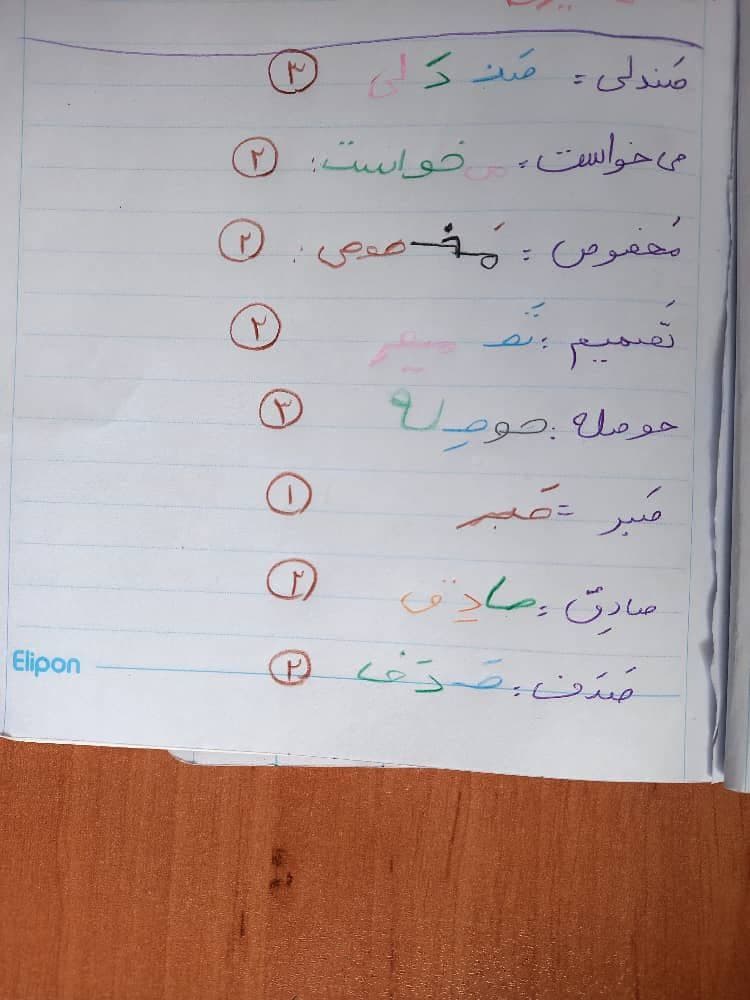 صَندلی = صَنـ دَ لی ۳
می‌خواست = می خواست: ۲
مَخصوص = مَخـ صوص: ۲
تَصمیم: تَصـ میم ۲
حوصله: حو صِـ له ۳
صَبر = صَبر ۱
صادِق = صا دِق ۲
صَدَف = صَـ دَف ۲
Elipon